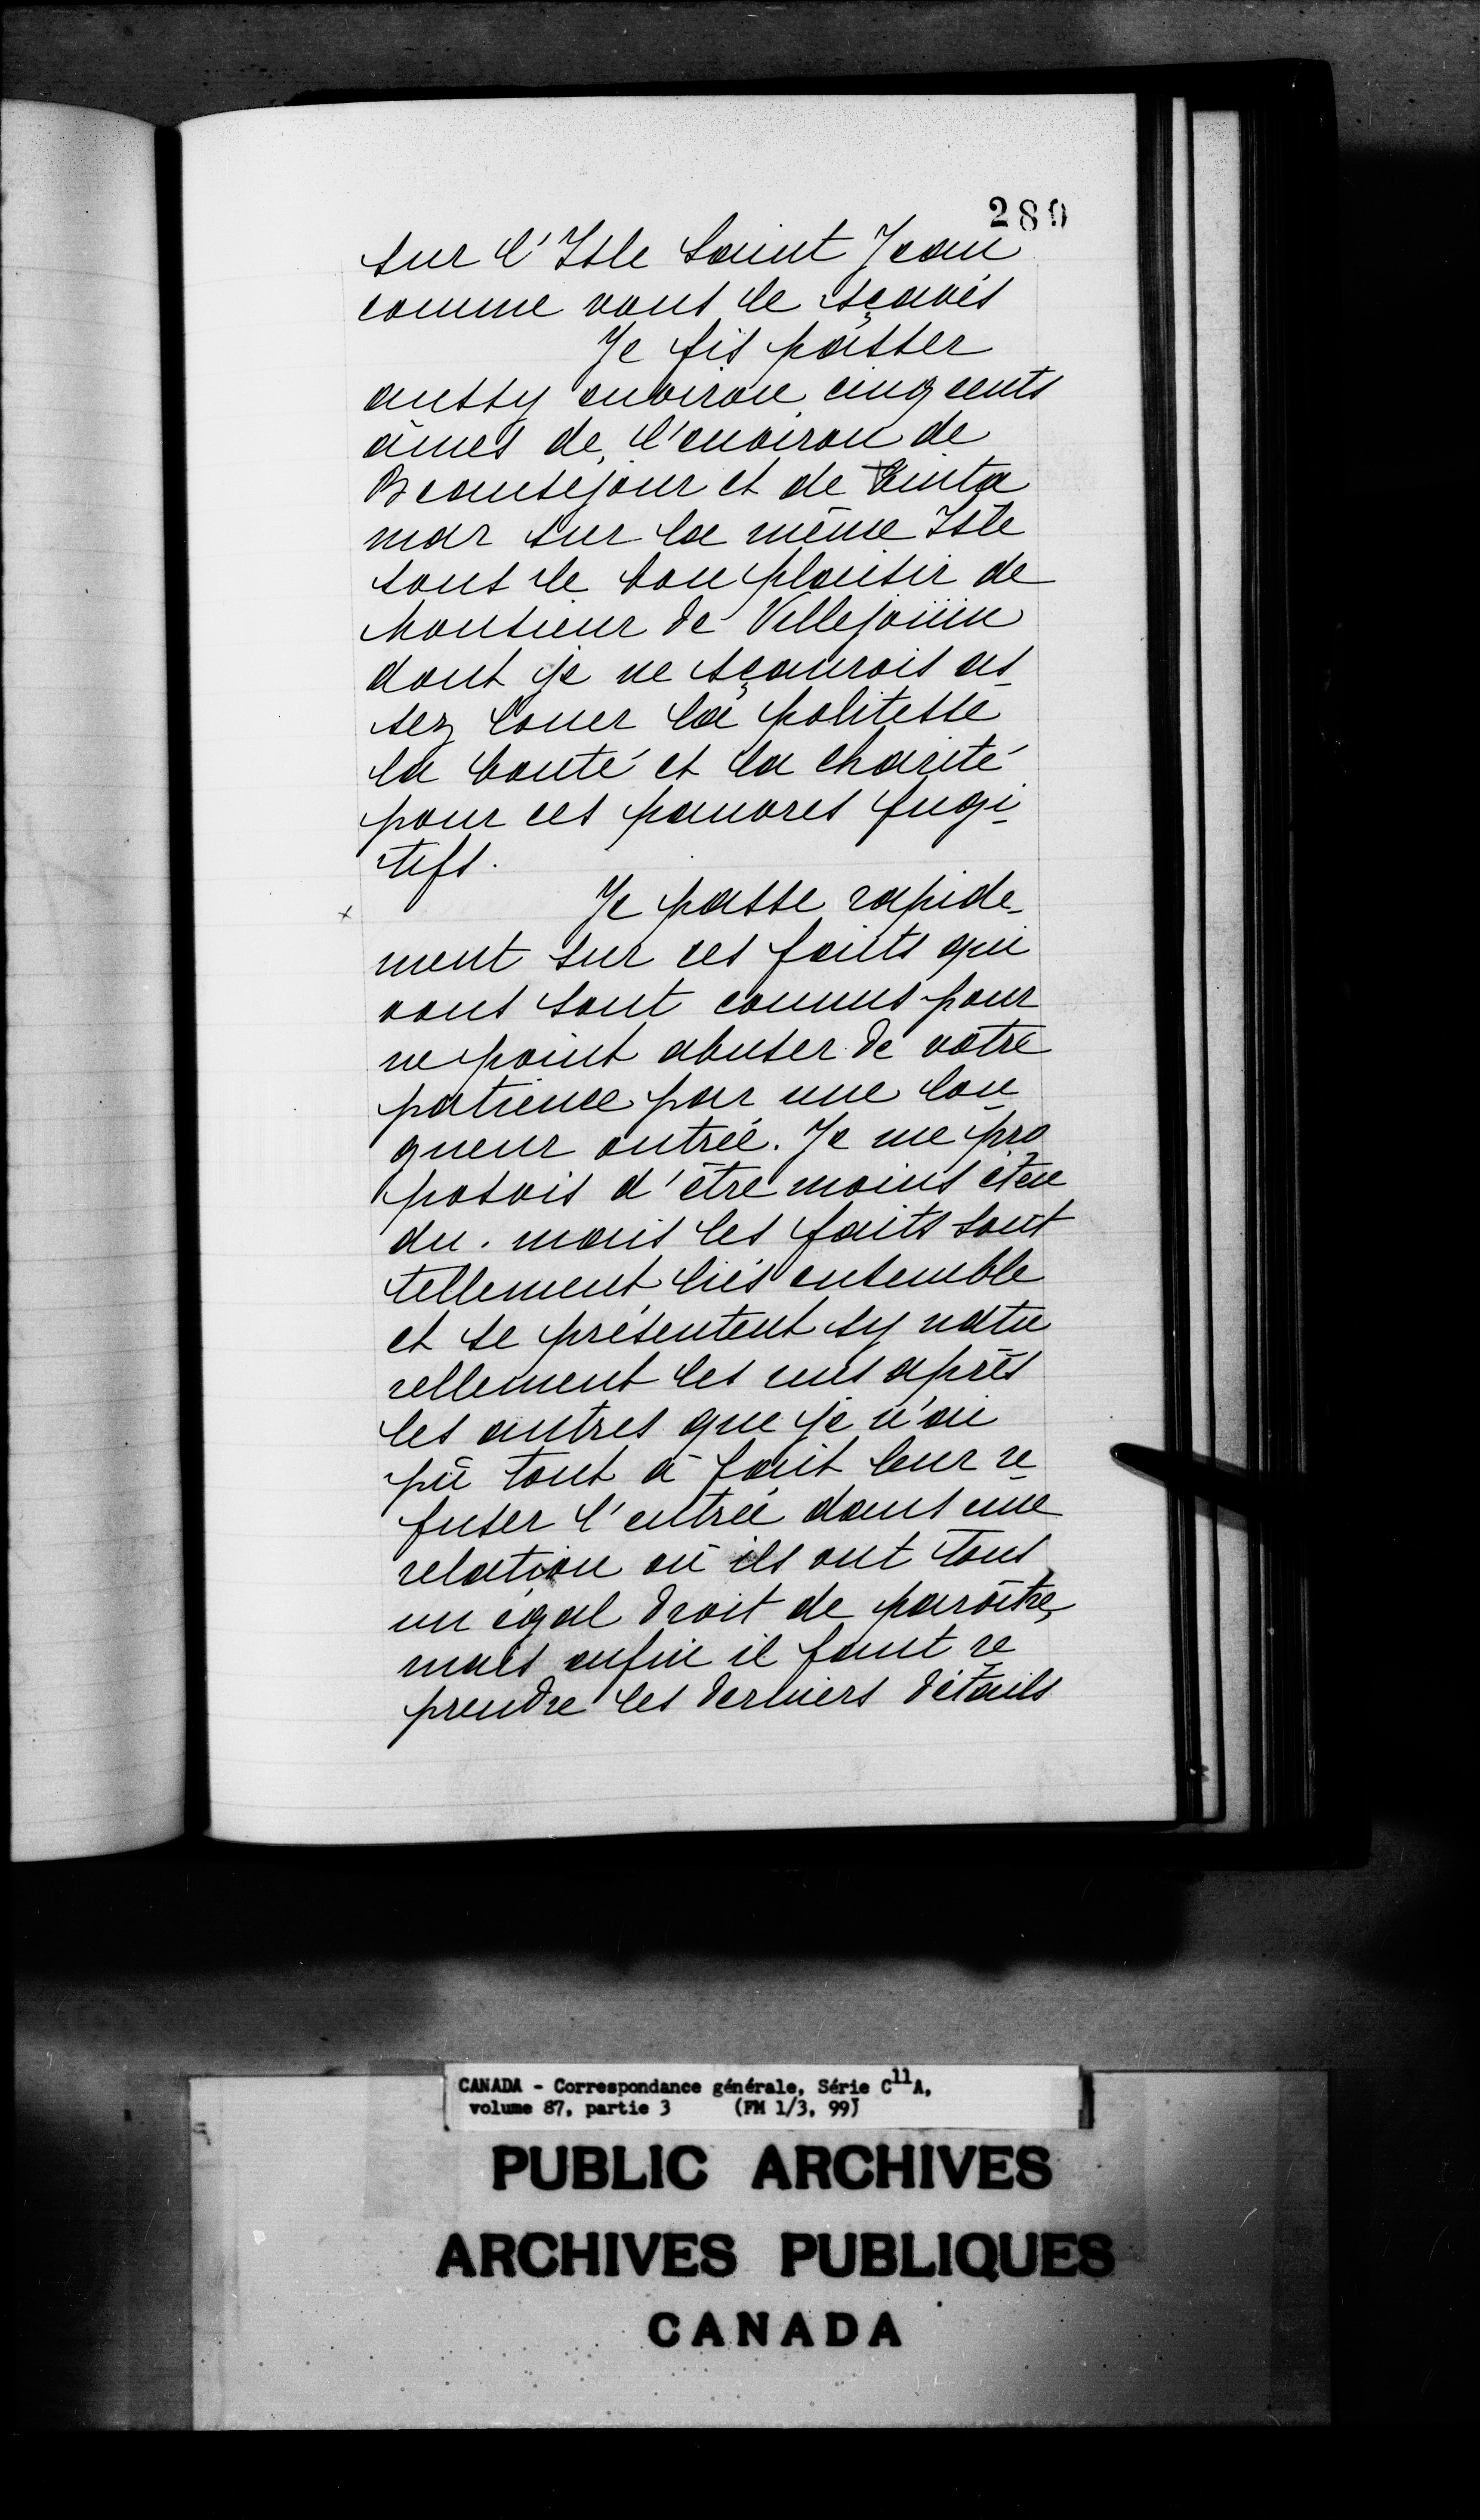 280
sur l'Isle Saint Jean
comme vous le sçavés
Je fis passer
aussy environ cinq cents
âmes de l'environ de
Beauséjour et de Tinta
mar sur la même Isle
sous le bon plaisir de
Monsieur de Villejoüin
dont je ne sçaurois as
sez louer la politesse
la bonté et la charité
pour ces pauvres fugi
tifs.
x Je passe rapide-
ment sur ces faits qui
vous sont connus pour
ne point abuser de votre
patience par une lon
gueur outrée. Je me pro
posois d'être moins éten
du. mais les faits sont
tellement liés ensemble
et se présentent sy natu
rellement les uns après
les autres que je n'ai
pû tout à fait leur re
fuser l'entrée dans une
relation où ils ont tous
un égal droit de paroître,
mais enfin il faut re
prendre les derniers détails
CANADA - Correspondance générale, Série C11A,
volume 87, partie 3 (FM 1/3, 99)
PUBLIC ARCHIVES
ARCHIVES PUBLIQUES
CANADA